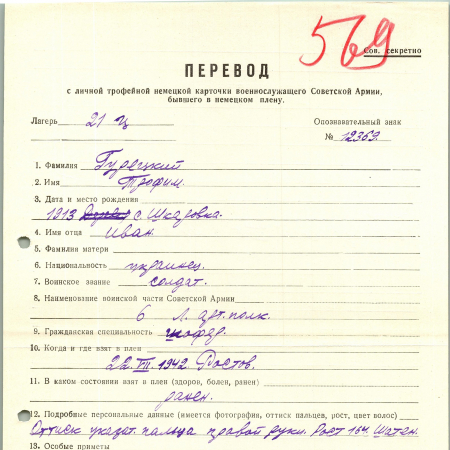 569
Сов. секретно
ПЕРЕВОД
с личной трофейной немецкой карточки военнослужащего Советской Армии,
бывшего в немецком плену.
Лагерь 21 ц Опознавательный знак
№ 12369.
1. Фамилия Гурецкий
2. Имя Трофим.
3. Дата и место рождения
1913 с Шкаровка.
4. Имя отца Иван
5. Фамилия матери
6. Национальность украинец.
7. Воинское звание солдат.
8. Наименование воинской части Советской Армии
6 л. арт. полк.
9. Гражданская специальность шофер.
10. Когда и где взят в плен
22 VII. 1942 Ростов.
11. В каком состоянии взят в плен (здоров, болен, ранен)
ранен.
12. Подробные персональные данные (имеется фотография, оттиск пальцев, рост, цвет волос)
Оттиск указат. пальца правой руки. Рост 164. Шатен.
13. Особые приметы